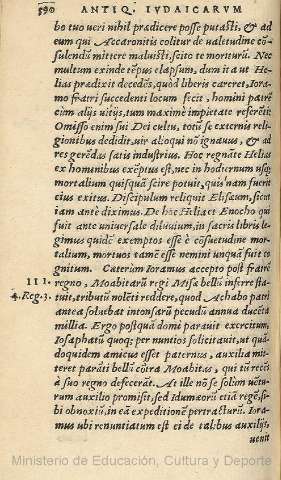 590 ANTIQ. IVDAICARVM
bo tuo veri nihil prædicere posse putasti, & ad
eum qui Accaronitis colitur de valetudine cō-
sulendū mittere maluisti, scito te moriturū. Nec
multum exinde tēpus elapsum, dum ita ut He-
lias prædixit decedēs, quòd liberis careret, Iora-
mo fratri succedenti locum fecit, homini patrē
cùm alijs vitijs, tum maximè impietate referēti.
Omisso enim sui Dei cultu, totū se externis reli-
gionibus dedidit, vir alioqui nō ignauus, & ad
res gerēdas satis industrius. Hoc regnāte Helias
ex hominibus exēptus est, nec in hodiernum usq;
mortalium quisquā scire potuit, quis nam fuerit
eius exitus. Discipulum reliquit Elisæum, sicut
iam antè diximus. De hoc Helia et Enocho qui
fuit ante vniuersale diluuium, in sacris libris le-
gimus quidē exemptos esse è cōsuetudine mor-
talium, mortuos tamē esse nemini unquā fuit co-
gnitum. Cæterùm Ioramus accepto post fratrē
III. regno, Moabitarū regi Misa bellū inferre sta-
4. Reg. 3. tuit, tributū nolēti reddere, quod Achabo patri
antea soluebat intonsarū pecudū annua ducēta
millia. Ergo postquā domi parauit exercitum,
Iosaphatū quoq; per nuntios solicitauit, ut quā-
doquidem amicus esset paternus, auxilia mit-
teret parāti bellū cōtra Moabitas, qui tū recēs
à suo regno defecerāt. At ille nō se solùm vetu-
rum auxilio promisit, sed Idumæorū etiā regē, si-
bi obnoxiū, in eā expeditionē pertracturū. Iora-
mus ubi renuntiatum est ei de talibus auxilijs,
uenit
Ministerio de Educación, Cultura y Deporte